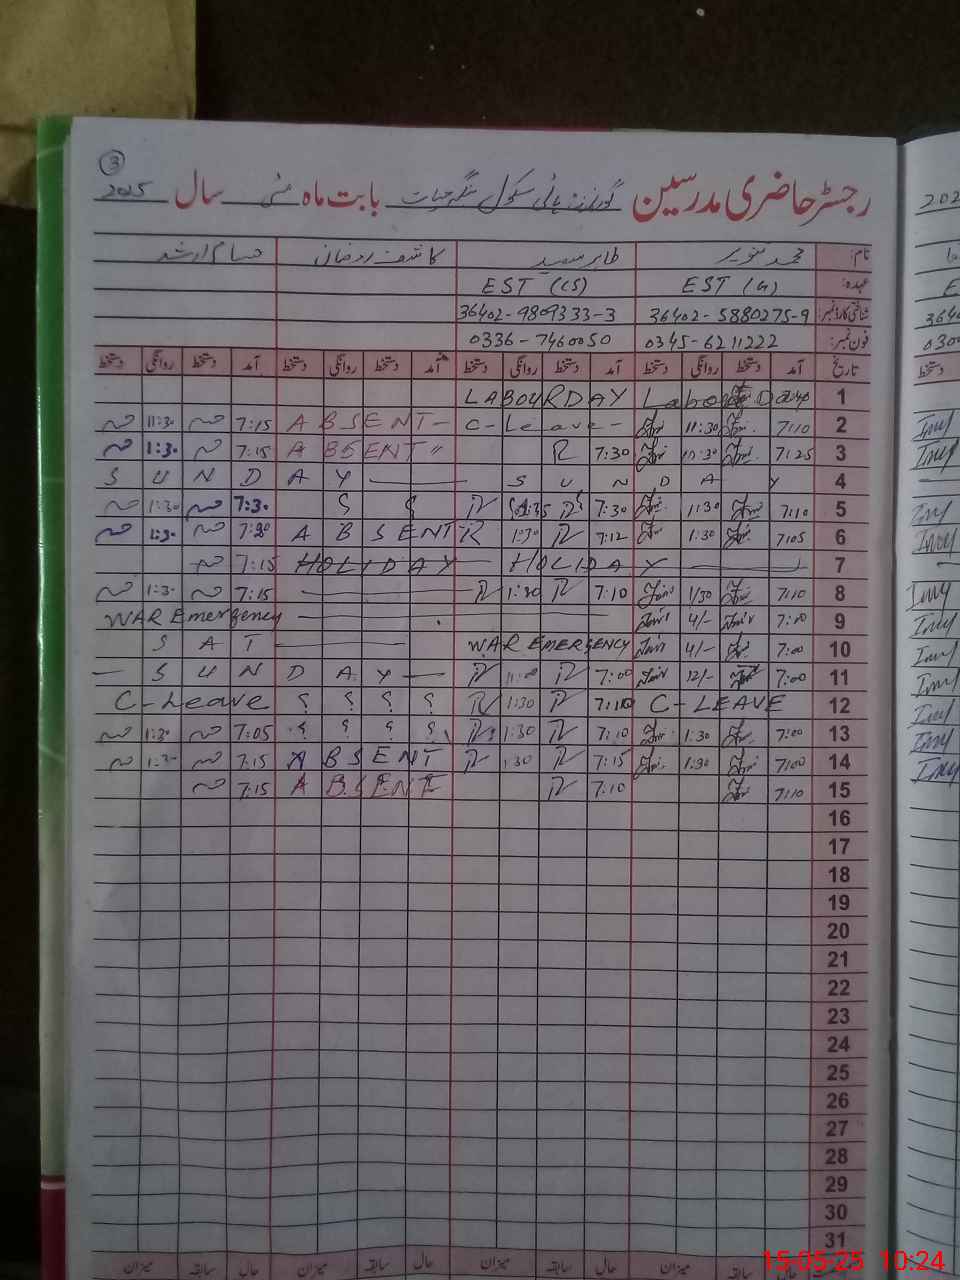 3
رجسٹر حاضری مدرسین گورنمنٹ ہائی سکول بابت ماہ مئی سال 2025
نام: محمد تنویر طاہر سعید کاشف رمضان حسام ارشد
عہدہ: EST (G) EST (CS)
شناختی کارڈ نمبر: 36402-5880275-9 36402-9809333-3
فون نمبر: 0345-6211222 0336-7460050
تاریخ آمد دستخط روانگی دستخط آمد دستخط روانگی دستخط آمد دستخط روانگی دستخط آمد دستخط روانگی دستخط
1 Labour Day LABOUR DAY
2 7:10 11:30 C-Leave- ABSENT- 7:15 11:30
3 7:25 11:30 7:30 ABSENT " 7:15 1:30
4 SUNDAY SUNDAY
5 7:10 1:30 7:30 ؟ ؟ 7:30 1:30
6 7:05 1:30 7:12 1:30 ABSENT 7:20 1:30
7 HOLIDAY HOLIDAY 7:15
8 7:10 1/30 7:10 1:30 7:15 1:30
9 7:00 4/- WAR Emergency
10 7:00 4/- WAR EMERGENCY SAT
11 7:00 12/- 7:00 11:00 SUNDAY
12 C-LEAVE 7:10 1:30 ؟ ؟ ؟ ؟ C-Leave
13 7:00 1:30 7:10 1:30 ؟ ؟ ؟ ؟ 7:05 1:30
14 7:00 1:30 7:15 1:30 ABSENT 7:15 1:30
15 7:10 7:10 ABSENT 7:15
16
17
18
19
20
21
22
23
24
25
26
27
28
29
30
31
حال سابقہ میزان حال سابقہ میزان حال سابقہ میزان حال سابقہ میزان
15-05-25 10:24